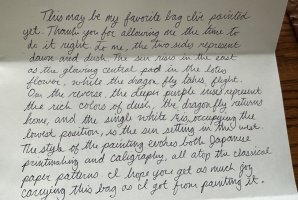 This may be my favorite bag I've painted
yet. Thank you for allowing me the time to
do it right. To me, the two sides represent
dawn and dusk. The sun rises in the east
as the glowing central pad in the lotus
flower, while the dragon fly takes flight.
On the reverse the deeper purple irises represent
the rich colors of dusk, the dragonfly returns
home, and the single white iris, occupying the
lowest position, is the sun setting in the west.
The style of the painting evokes both Japanese
printmaking and caligraphy, all atop the classical
paper patterns. I hope you get as much joy
carrying this bag as I got from painting it.